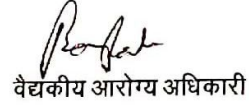 वैद्यकीय आरोग्य अधिकारी